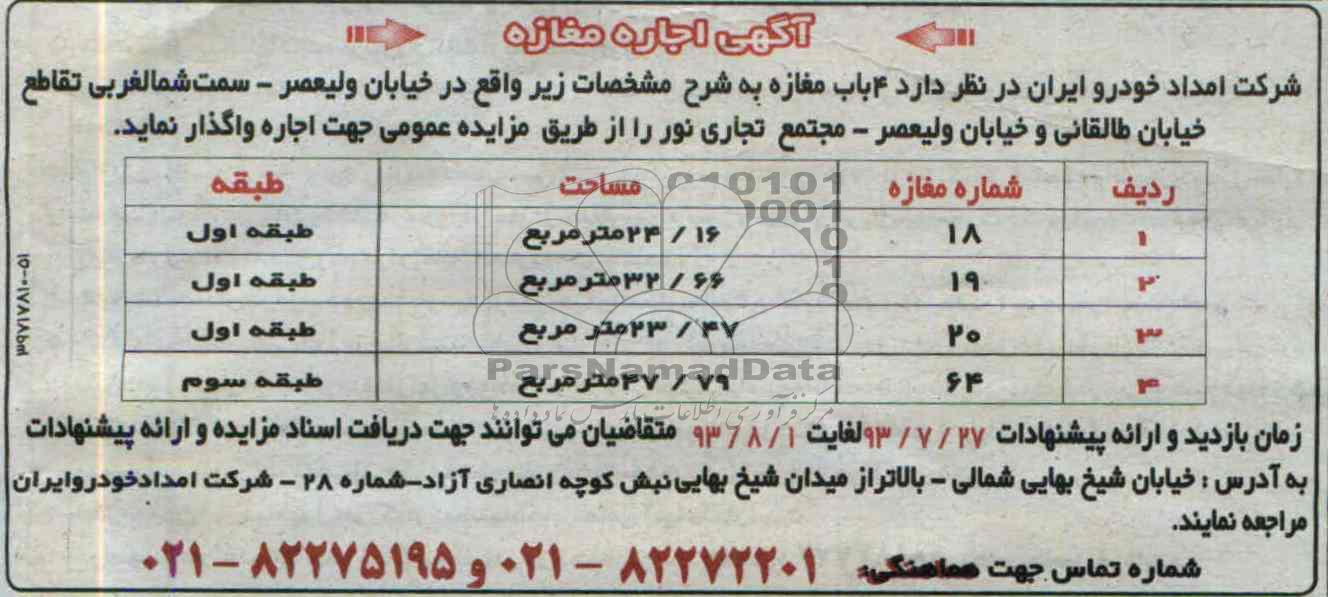 آگهی اجاره مغازه
شرکت امداد خودرو ایران در نظر دارد ۴باب مغازه به شرح مشخصات زیر واقع در خیابان ولیعصر – سمت‌شمالغربی تقاطع
خیابان طالقانی و خیابان ولیعصر – مجتمع تجاری نور را از طریق مزایده عمومی جهت اجاره واگذار نماید.
ردیف شماره مغازه مساحت طبقه
۱ ۱۸ ۱۶ / ۲۴مترمربع طبقه اول
۲ ۱۹ ۶۶ / ۳۲مترمربع طبقه اول
۳ ۲۰ ۴۷ / ۲۳متر مربع طبقه اول
۴ ۶۴ ۷۹ / ۴۷مترمربع طبقه سوم
ParsNamadData
مرکز فرآوری اطلاعات پارس نماد داده ها
زمان بازدید و ارائه پیشنهادات ۹۳ / ۷ / ۲۷لغایت ۹۳ / ۸ / ۱ متقاضیان می توانند جهت دریافت اسناد مزایده و ارائه پیشنهادات
به آدرس : خیابان شیخ بهایی شمالی – بالاتراز میدان شیخ بهایی نبش کوچه انصاری آزاد–شماره ۲۸ – شرکت امدادخودروایران
مراجعه نمایند.
شماره تماس جهت هماهنگی: ۸۲۲۷۲۲۰۱ – ۰۲۱ و ۸۲۲۷۵۱۹۵ – ۰۲۱